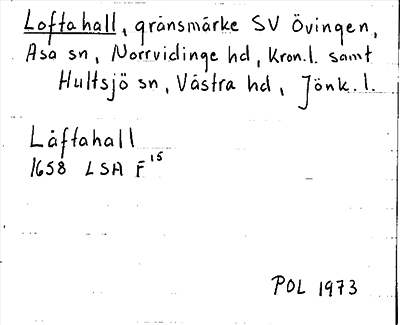 Loftahall, gränsmärke SV Övingen,
Asa sn, Norrvidinge hd, Kron.l. samt
Hultsjö sn, Västra hd, Jönk.l.
Låftahall
1658 LSA F 15
POL 1973